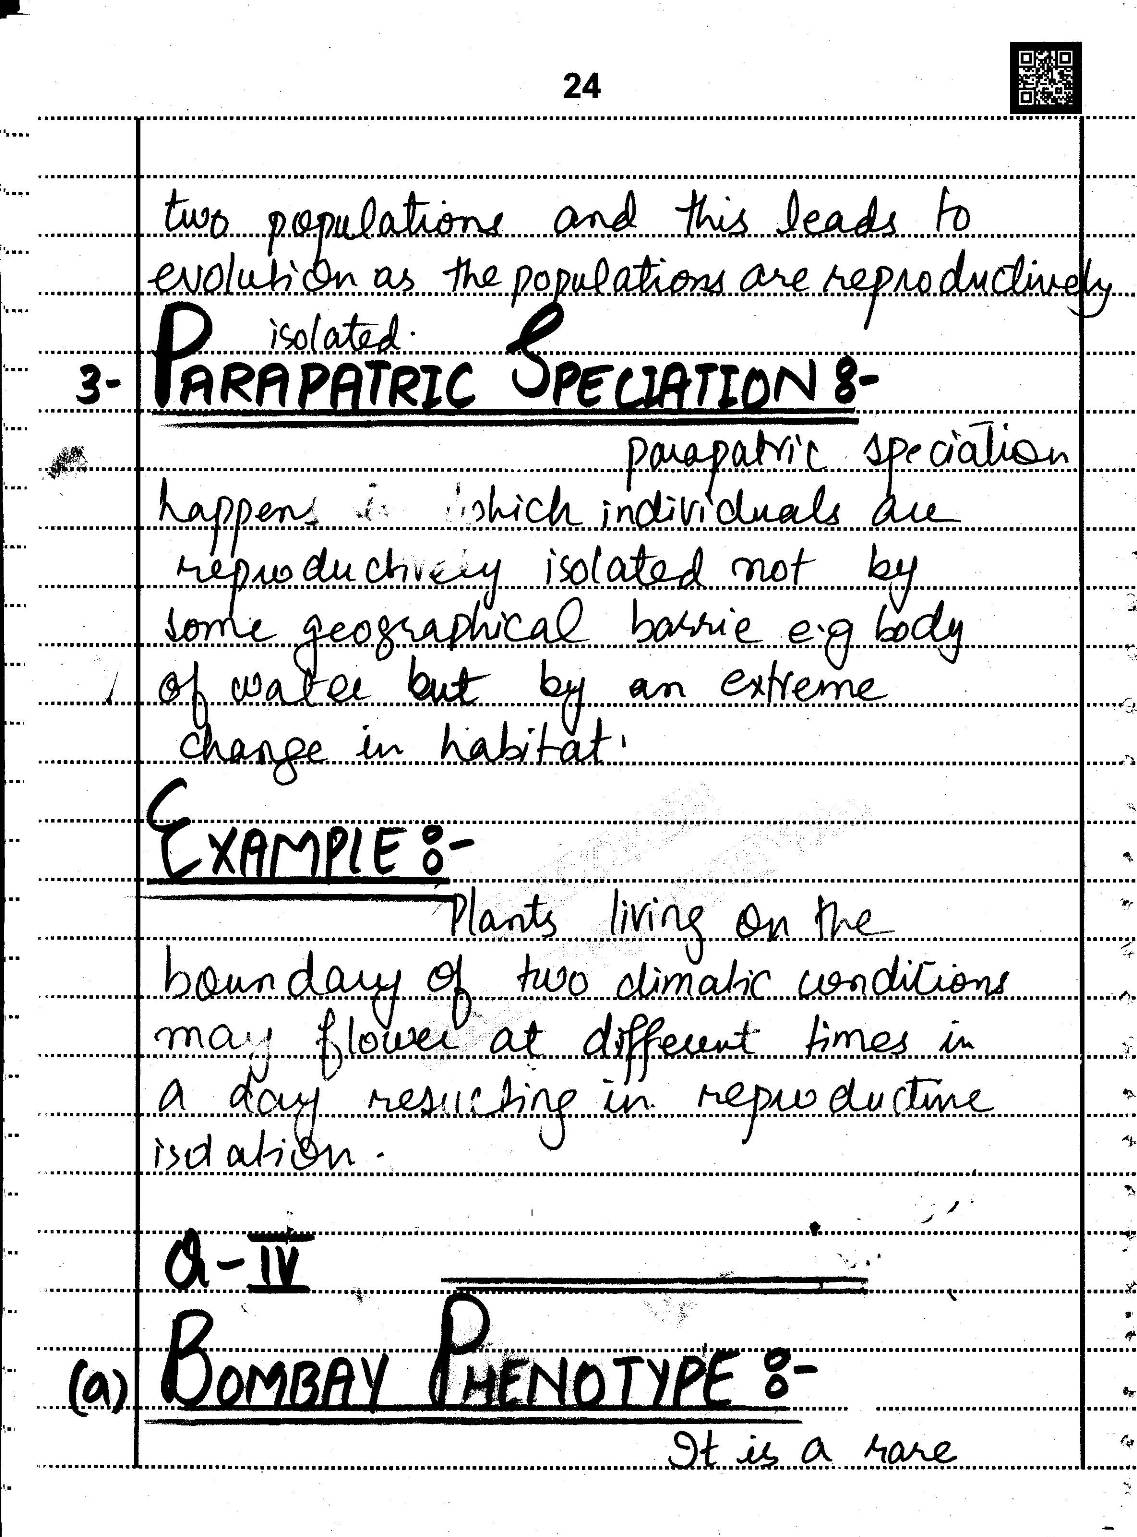 24
two populations and this leads to
evolution as the populations are reproductively
isolated.
3- PARAPATRIC SPECIATION :-
parapatric speciation
happens in which individuals are
reproductively isolated not by
some geographical barrie e.g body
of water but by an extreme
change in habitat.
EXAMPLE :-
Plants living on the
boundary of two climatic conditions
may flower at different times in
a day resulting in reproductive
isolation.
Q-IV
(a) BOMBAY PHENOTYPE :-
It is a rare